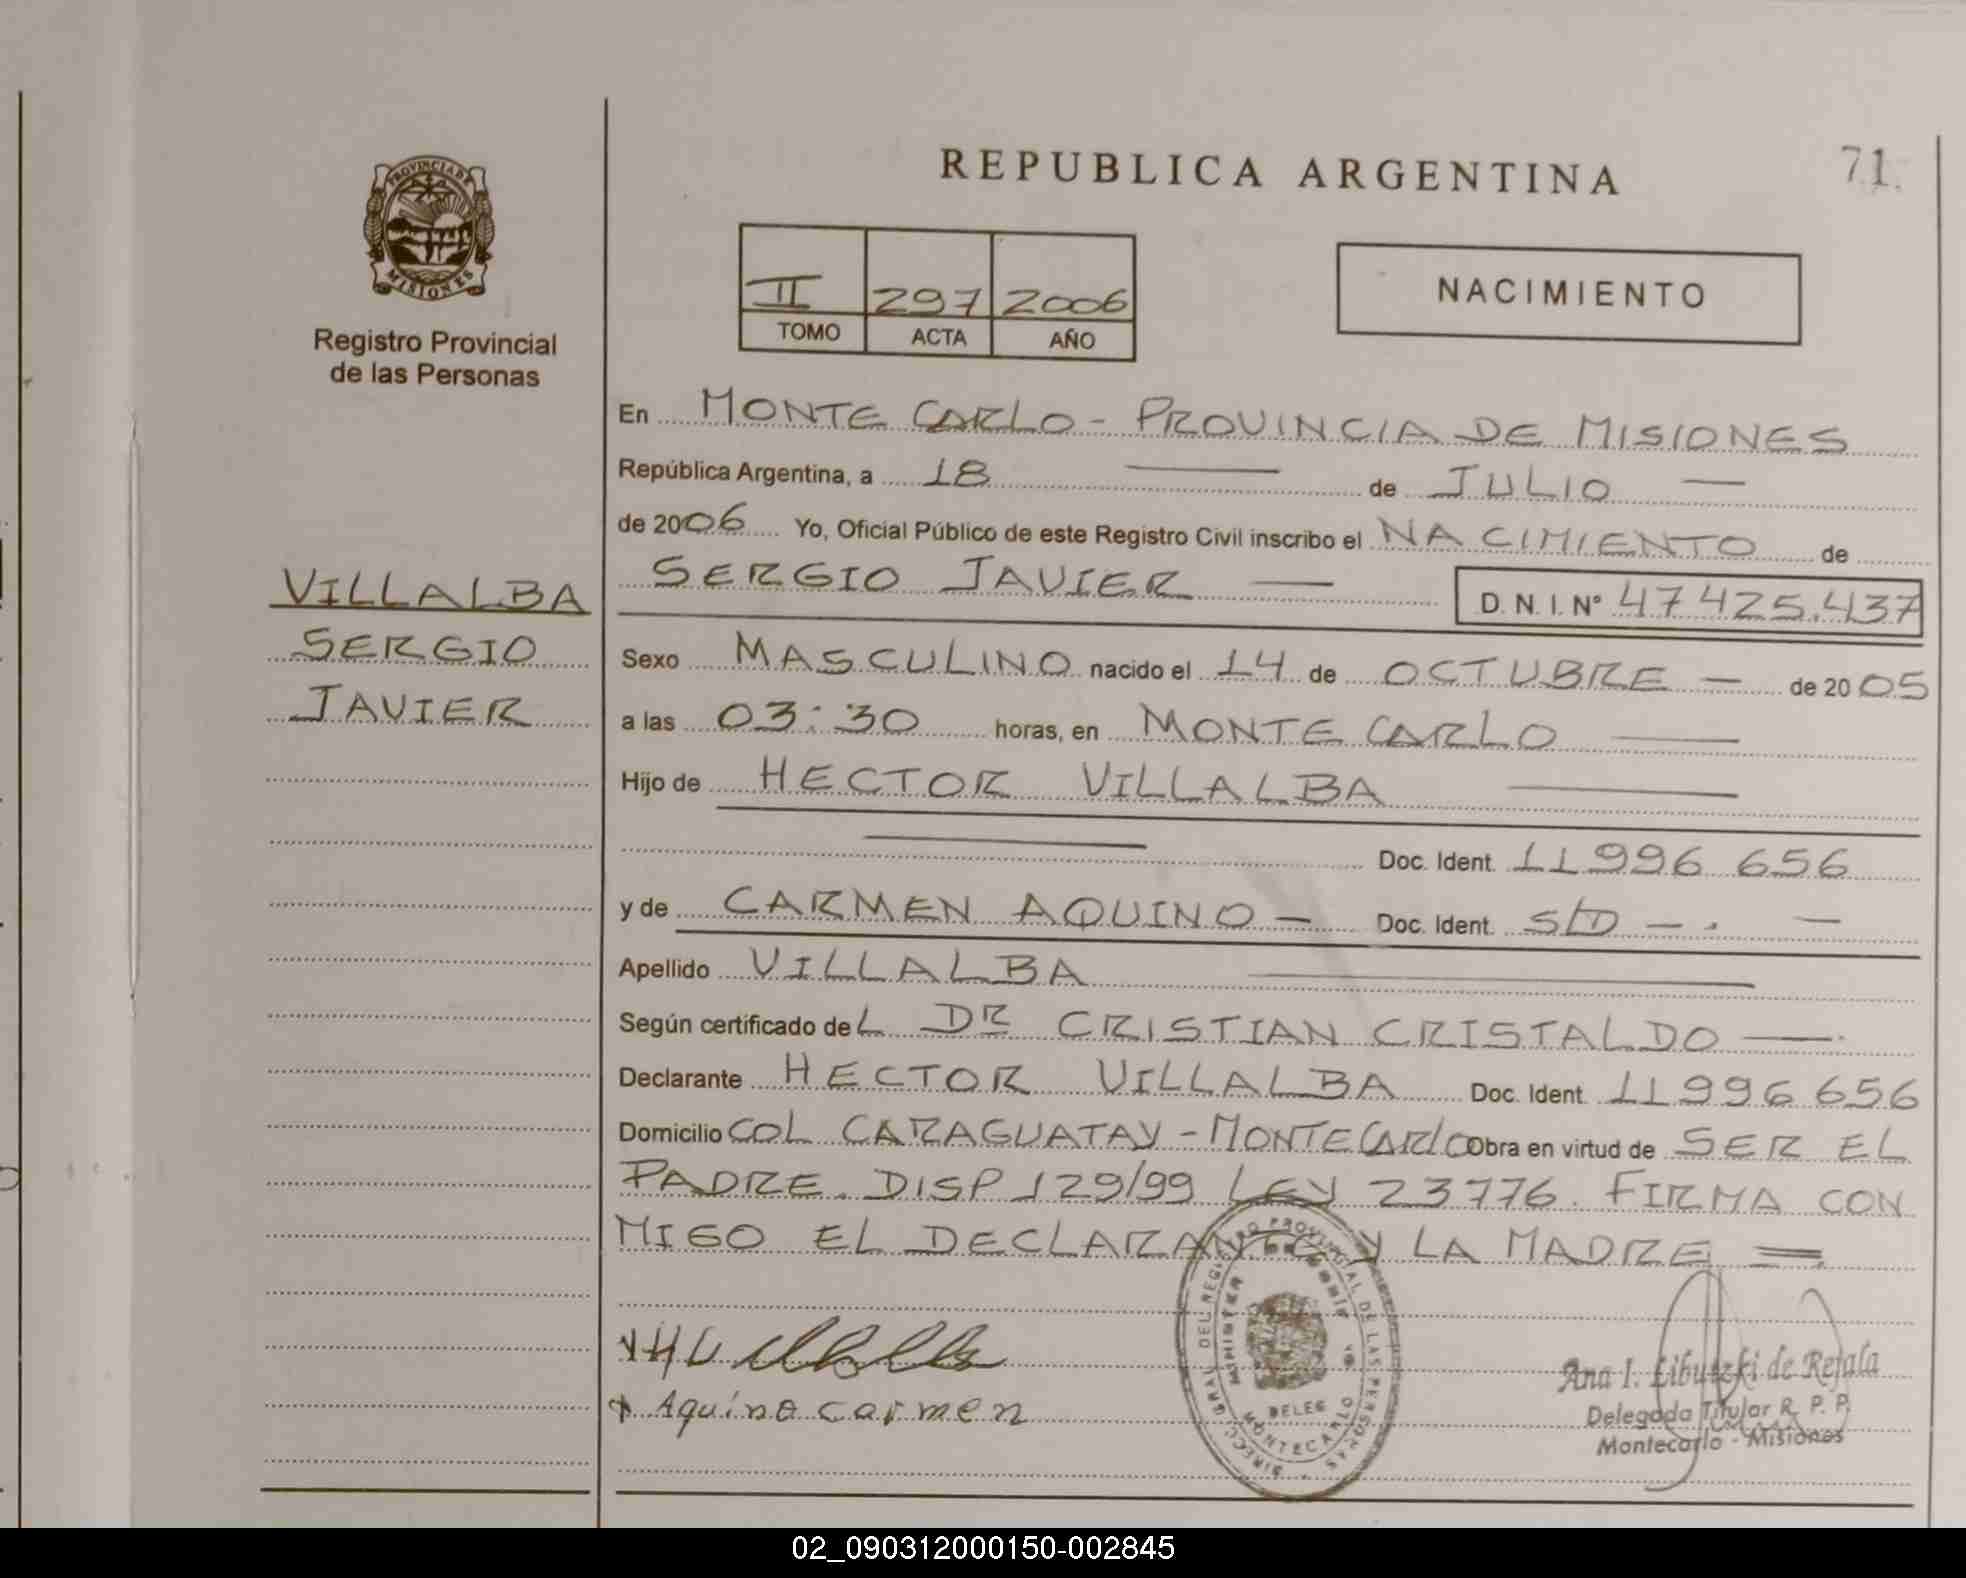 REPUBLICA ARGENTINA
71.
PROVINCIA DE
MISIONES
Registro Provincial
de las Personas
II 297 2006
TOMO ACTA AÑO
NACIMIENTO
VILLALBA
SERGIO
JAVIER
En MONTE CARLO - PROVINCIA DE MISIONES
República Argentina, a 18 de JULIO
de 2006 Yo, Oficial Público de este Registro Civil inscribo el NACIMIENTO de
SERGIO JAVIER D. N. I. Nº 47425.437
Sexo MASCULINO nacido el 14 de OCTUBRE de 2005
a las 03:30 horas, en MONTE CARLO
Hijo de HECTOR VILLALBA
Doc. Ident. 11996 656
y de CARMEN AQUINO Doc. Ident. S/D
Apellido VILLALBA
Según certificado del DR CRISTIAN CRISTALDO
Declarante HECTOR VILLALBA Doc. Ident. 11996656
Domicilio COL CARAGUATAY - MONTECARLO Obra en virtud de SER EL
PADRE. DISP 129/99 LEY 23776. FIRMA CON
MIGO EL DECLARANTE Y LA MADRE
Aquino carmen
DIRECC. GRAL. DEL REGISTRO PROVINCIAL DE LAS PERSONAS
DELEG
MONTECARLO
Ana I. Libutzki de Rejala
Delegada Titular R. P. P.
Montecarlo - Misiones
02_090312000150-002845